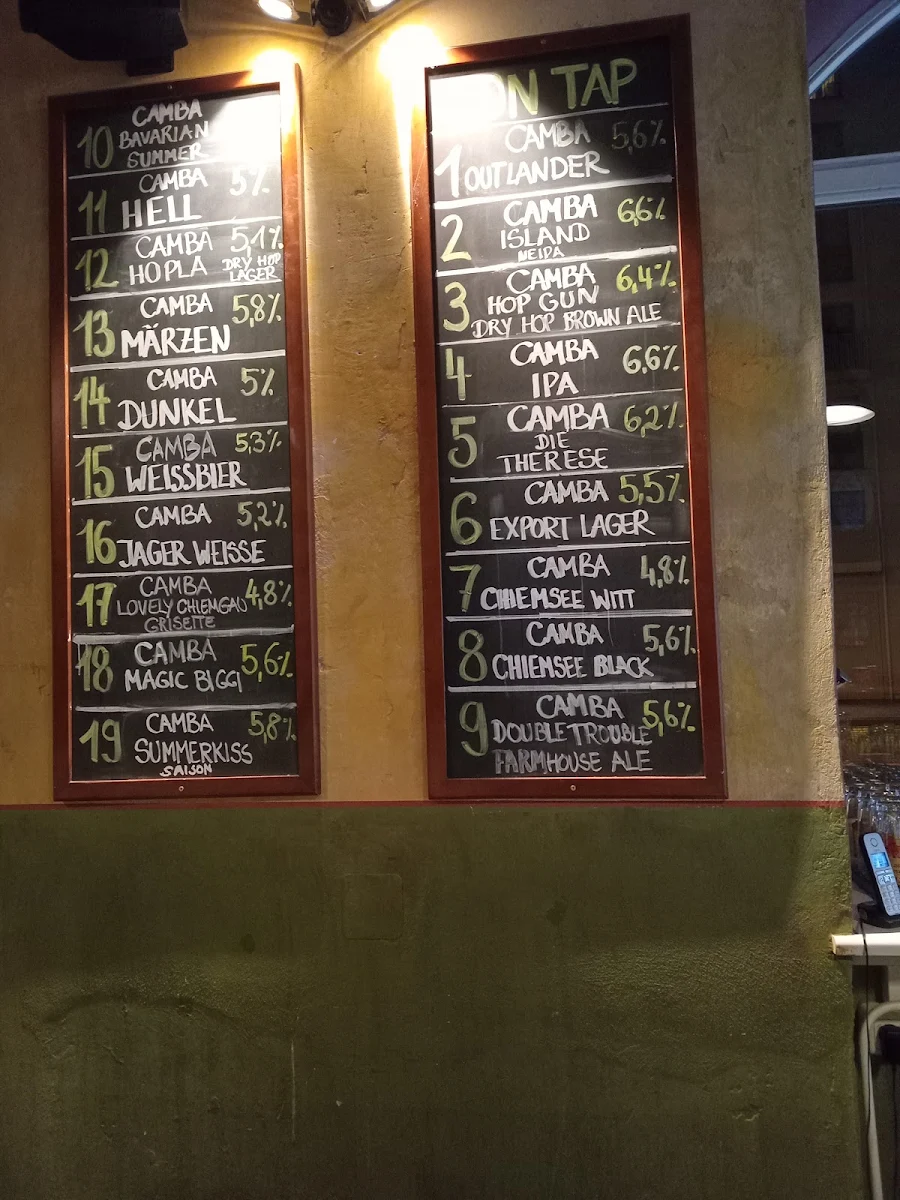 10 CAMBA
BAVARIAN
SUMMER
11 CAMBA 5%
HELL
12 CAMBA 5,1%
HOPLA DRY HOP
LAGER
13 CAMBA 5,8%
MÄRZEN
14 CAMBA 5%
DUNKEL
15 CAMBA 5,3%
WEISSBIER
16 CAMBA 5,2%
JAGER WEISSE
17 CAMBA 4,8%
LOVELY CHIEMGAU
GRISETTE
18 CAMBA 5,6%
MAGIC BIGGI
19 CAMBA 5,8%
SUMMERKISS
SAISON
ON TAP
1 CAMBA 5,6%
OUTLANDER
2 CAMBA 6,6%
ISLAND
NEIPA
3 CAMBA 6,4%
HOP GUN
DRY HOP BROWN ALE
4 CAMBA 6,6%
IPA
5 CAMBA 6,2%
DIE
THERESE
6 CAMBA 5,5%
EXPORT LAGER
7 CAMBA 4,8%
CHIEMSEE WITT
8 CAMBA 5,6%
CHIEMSEE BLACK
9 CAMBA 5,6%
DOUBLE TROUBLE
FARMHOUSE ALE